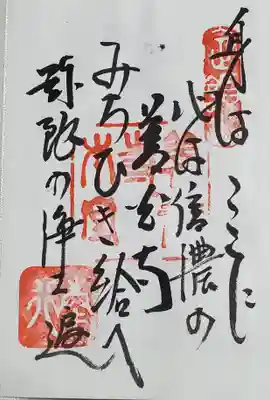 身はここに
心は信濃の
善光寺
みちびき給へ
弥陀の浄土遍